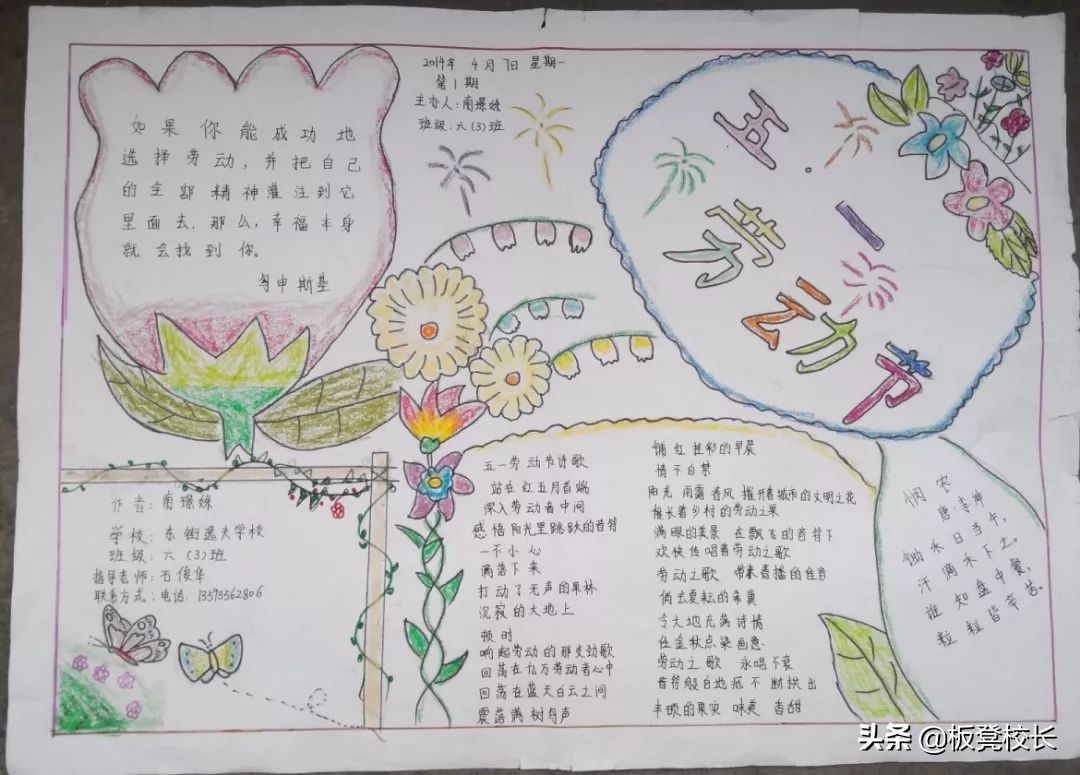 2014年 4月7日 星期一
第1期
主办人:南璟姝
班级:六(3)班
五·一
劳动节
如果你能成功地
选择劳动,并把自己
的全部精神灌注到它
里面去,那么,幸福本身
就会找到你。
作者:南璟姝
学校:东街逸夫学校
班级:六(3)班
指导老师:石俊华
联系方式:电话:13593562806
五一劳动节诗歌
站在红五月首端
深入劳动者中间
感悟阳光里跳跃的音符
一不小心
滴落下来
打动了无声的果林
沉寂的大地上
顿时
响起劳动的那支劲歌
回荡在亿万劳动者心中
回荡在蓝天白云之间
震落满树鸟声
铺红挂彩的早晨
情不自禁
阳光 雨露 春风 握开着城市的文明之花
催长着乡村的劳动之果
满眼的美景 在飘飞的音符下
欢快传唱着劳动之歌
劳动之歌 带来春播的佳音
倘去夏耘的希冀
令大地充满诗情
任金秋点染画意
劳动之歌 永唱不衰
音符般自地孤不断拱出
丰硕的果实 味美 香甜
悯农
唐·李绅
锄禾日当午,
汗滴禾下土。
谁知盘中餐,
粒粒皆辛苦。
头条 @板凳校长